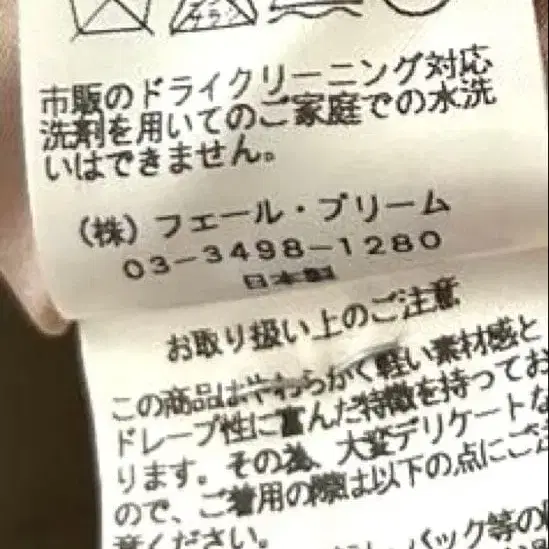 エンソ
サラン
市販のドライクリーニング対応
洗剤を用いてのご家庭での水洗
いはできません。
(株)フェール・プリーム
03-3498-1280
日本製
お取り扱い上のご注意
この商品はやわらかく軽い素材感と
ドレープ性に富んだ特徴を持ってお
ります。その為、大変デリケートな
ので、ご着用の際は以下の点にご注
意ください。
バック等の